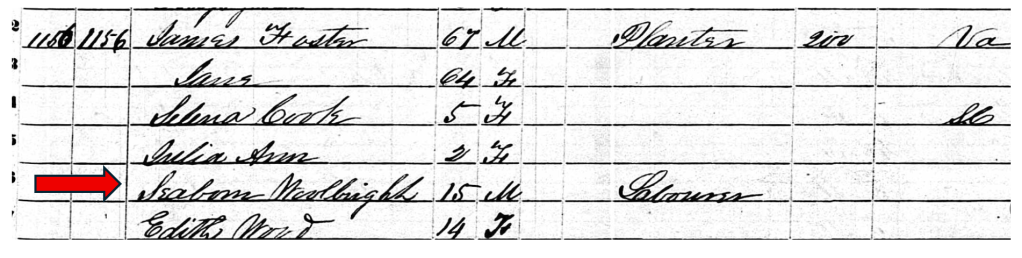 1156 1156 James Foster 67 M Planter 200 Va
Jane 64 F
Selena Cook 5 F SC
Julia Ann 2 F
Seaborn Woolbright 15 M Labourer
Edith Word 14 F